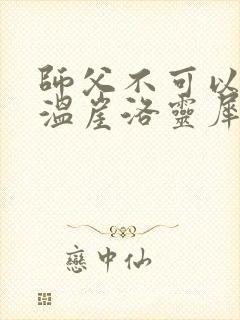 師父不可以
溫崖洛靈犀
戀中仙